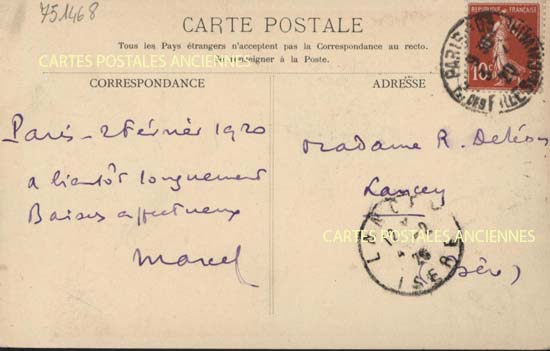 751468
CARTE POSTALE
Tous les Pays étrangers n'acceptent pas la Correspondance au recto.
Se renseigner à la Poste.
CARTES POSTALES ANCIENNES
CORRESPONDANCE
ADRESSE
RÉPUBLIQUE FRANÇAISE
10c
PARIS
Paris - 2 février 1920
a bientôt longuement
Baisers affectueux
Marcel
Madame R. Deléon
Lancey
(Isère)
LANCEY
ISERE
CARTES POSTALES ANCIENNES